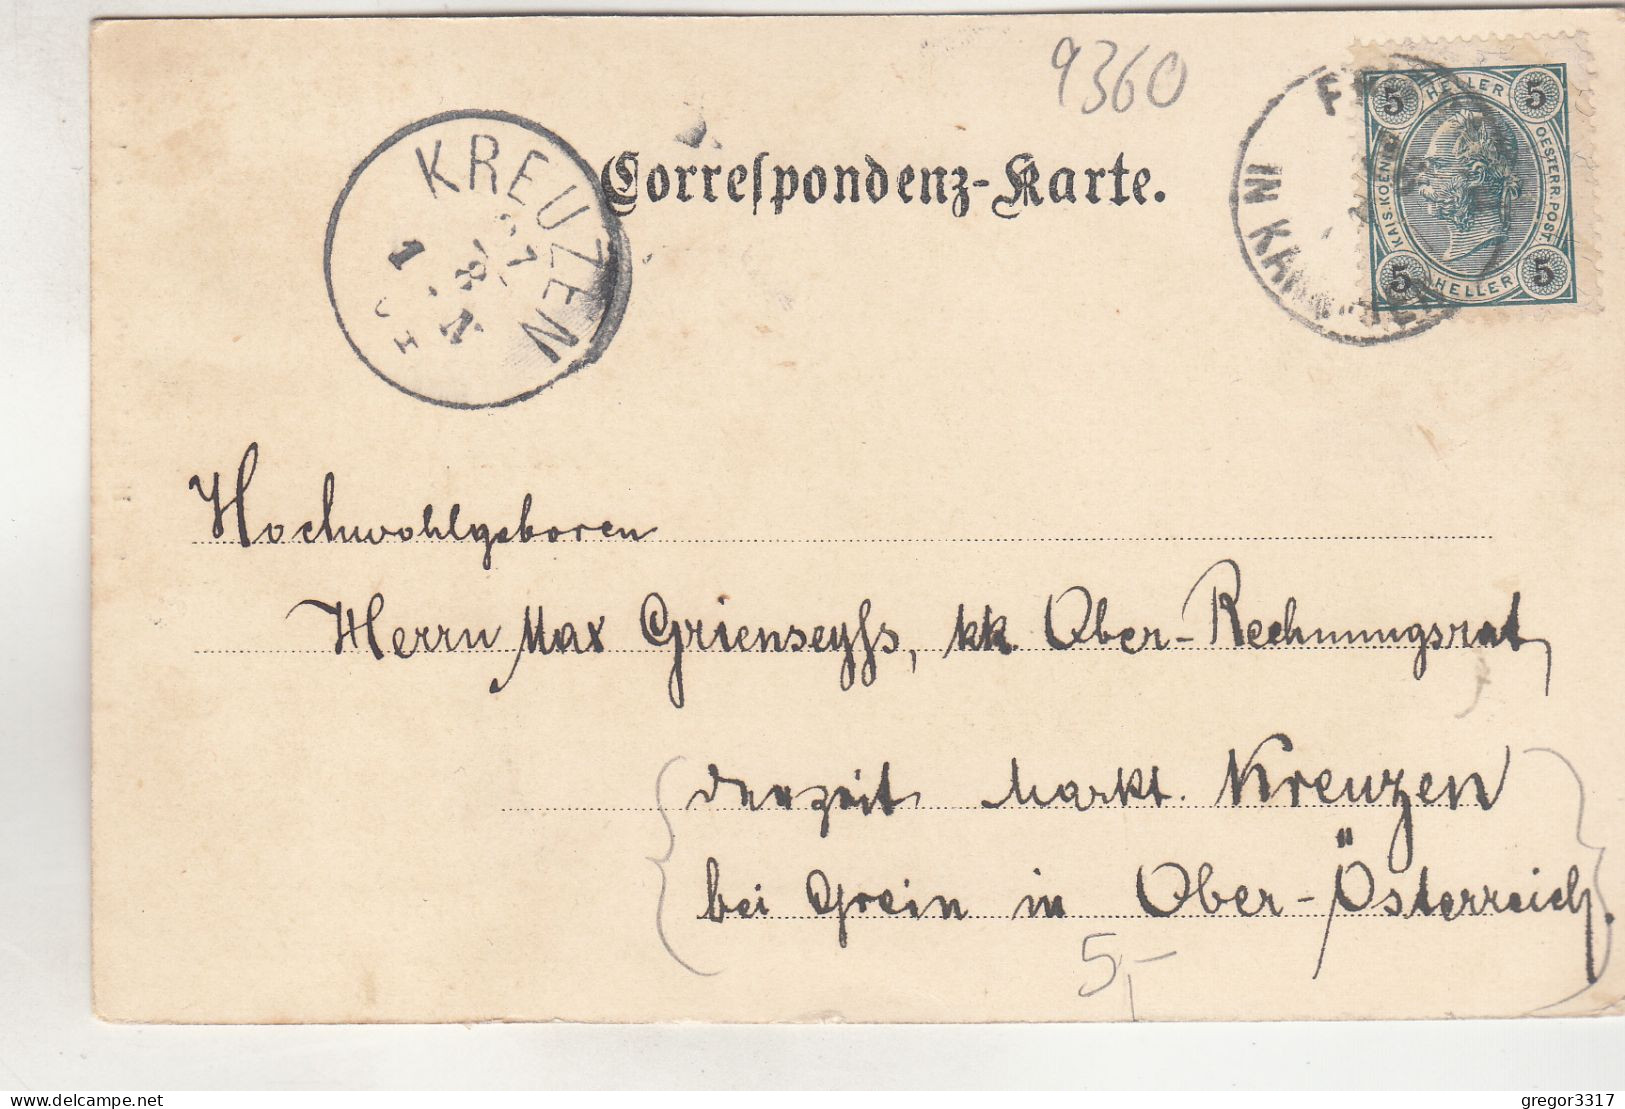 9360
Correſpondenz-Karte.
KREUZEN
F
IN KÄRNTEN
5 HELLER 5
KAIS. KOENIGL. OESTERR. POST.
5 HELLER 5
Hochwohlgeboren
Herrn Max Grienseyſs, kk. Ober-Rechnungsrat,
derzeit Markt Kreuzen
bei Grein in Ober-Österreich.
5,-
gregor3317